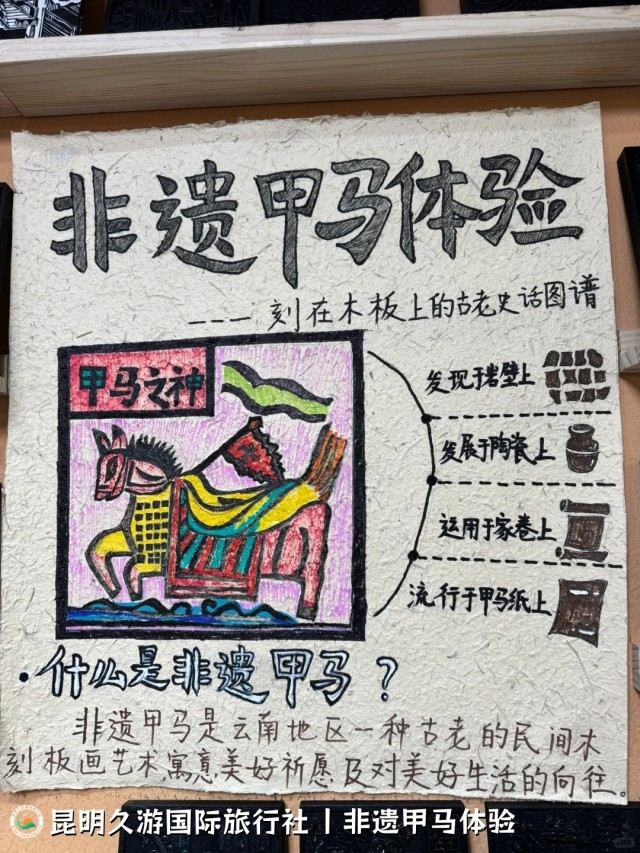 非遗甲马体验
———刻在木板上的古老史话图谱
甲马之神
发现于岩壁上
发展于陶瓷上
运用于家卷上
流行于甲马纸上
·什么是非遗甲马？
非遗甲马是云南地区一种古老的民间木
刻板画艺术寓意美好祈愿及对美好生活的向往。
昆明久游国际旅行社丨非遗甲马体验